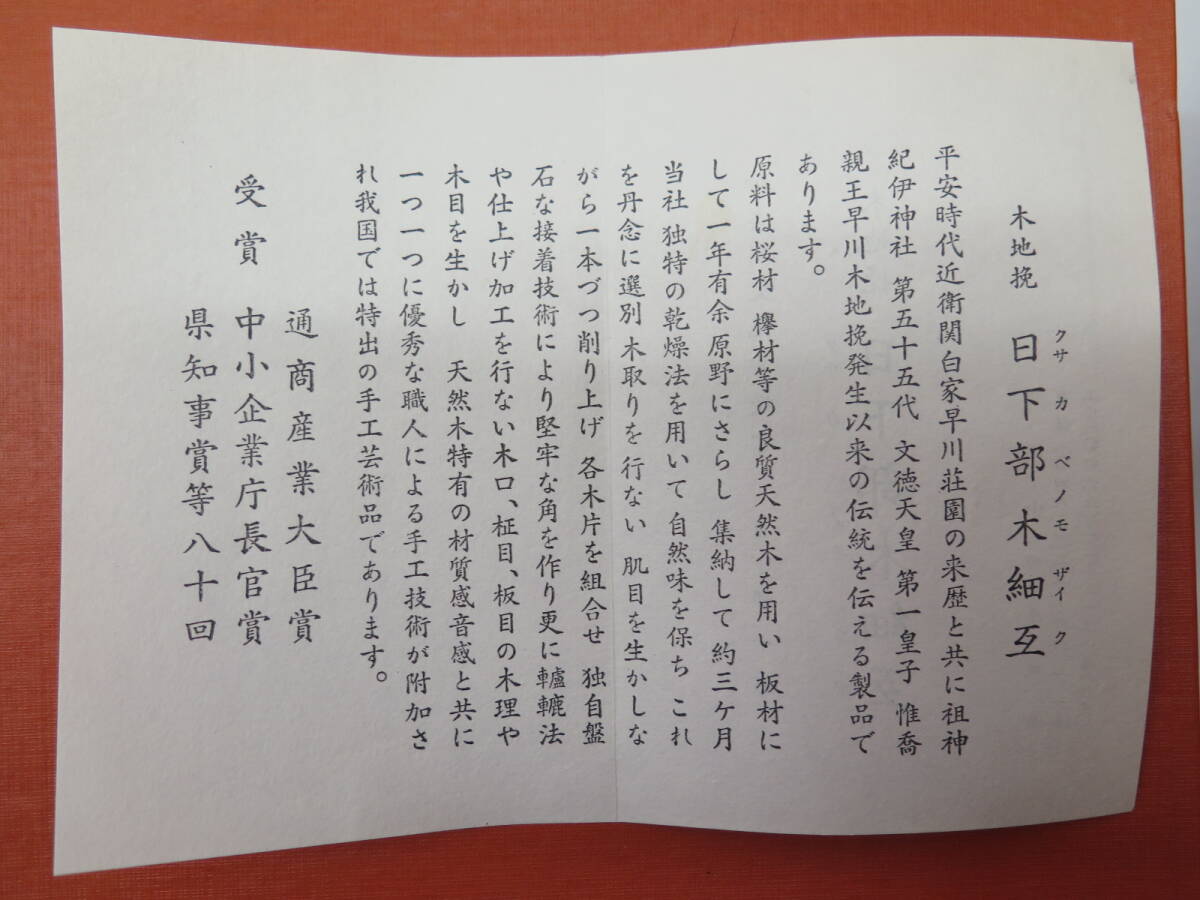 木地挽 日下部木細互
クサカベノモザイク
平安時代近衛関白家早川荘園の来歴と共に祖神
紀伊神社 第五十五代 文徳天皇 第一皇子 惟喬
親王早川木地挽発生以来の伝統を伝える製品で
あります。
原料は桜材 欅材等の良質天然木を用い 板材に
して一年有余 原野にさらし 集納して 約三ケ月
当社 独特の乾燥法を用いて 自然味を保ち これ
を丹念に選別 木取りを行ない 肌目を生かしな
がら一本づつ削り上げ 各木片を組合せ 独自盤
石な接着技術により堅牢な角を作り更に轤轆法
や仕上げ加工を行ない木口、柾目、板目の木理や
木目を生かし 天然木特有の材質感音感と共に
一つ一つに優秀な職人による手工技術が附加さ
れ我国では特出の手工芸術品であります。
受賞 通商産業大臣賞
中小企業庁長官賞
県知事賞等八十回